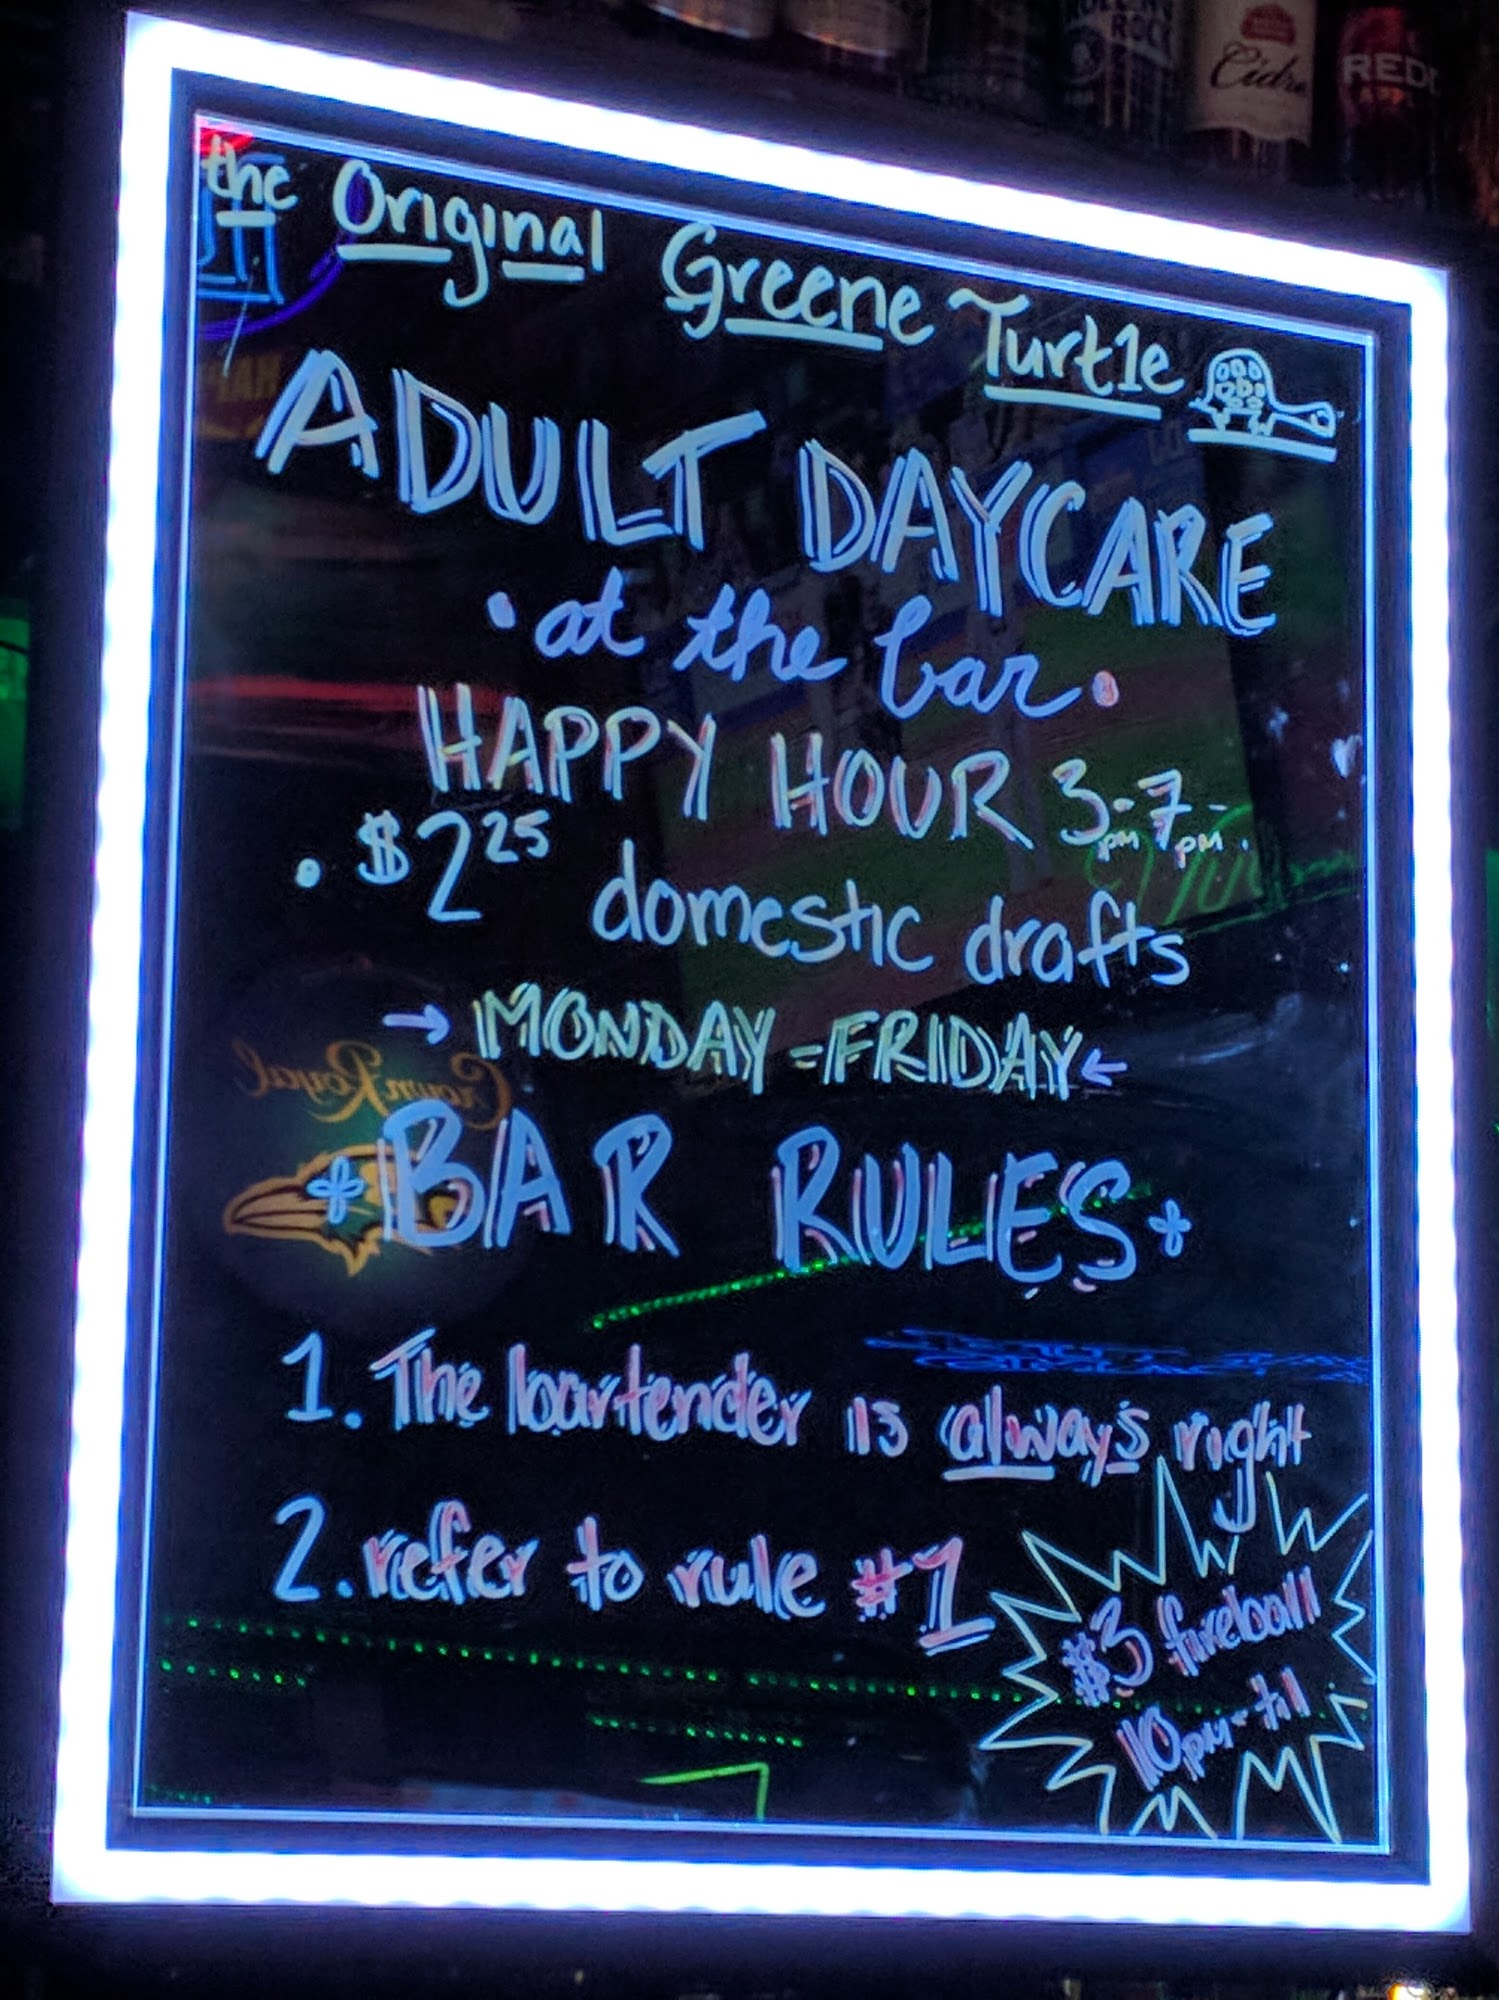 ROLLING
ROCK
Cidre
REDD
the Original Greene Turtle
ADULT DAYCARE
• at the bar •
HAPPY HOUR 3pm-7pm.
• $2 25 domestic drafts
→ MONDAY - FRIDAY ←
Crown Royal
BAR RULES
1. The bartender is always right
2. refer to rule #1
$3 fireball
10pm-til